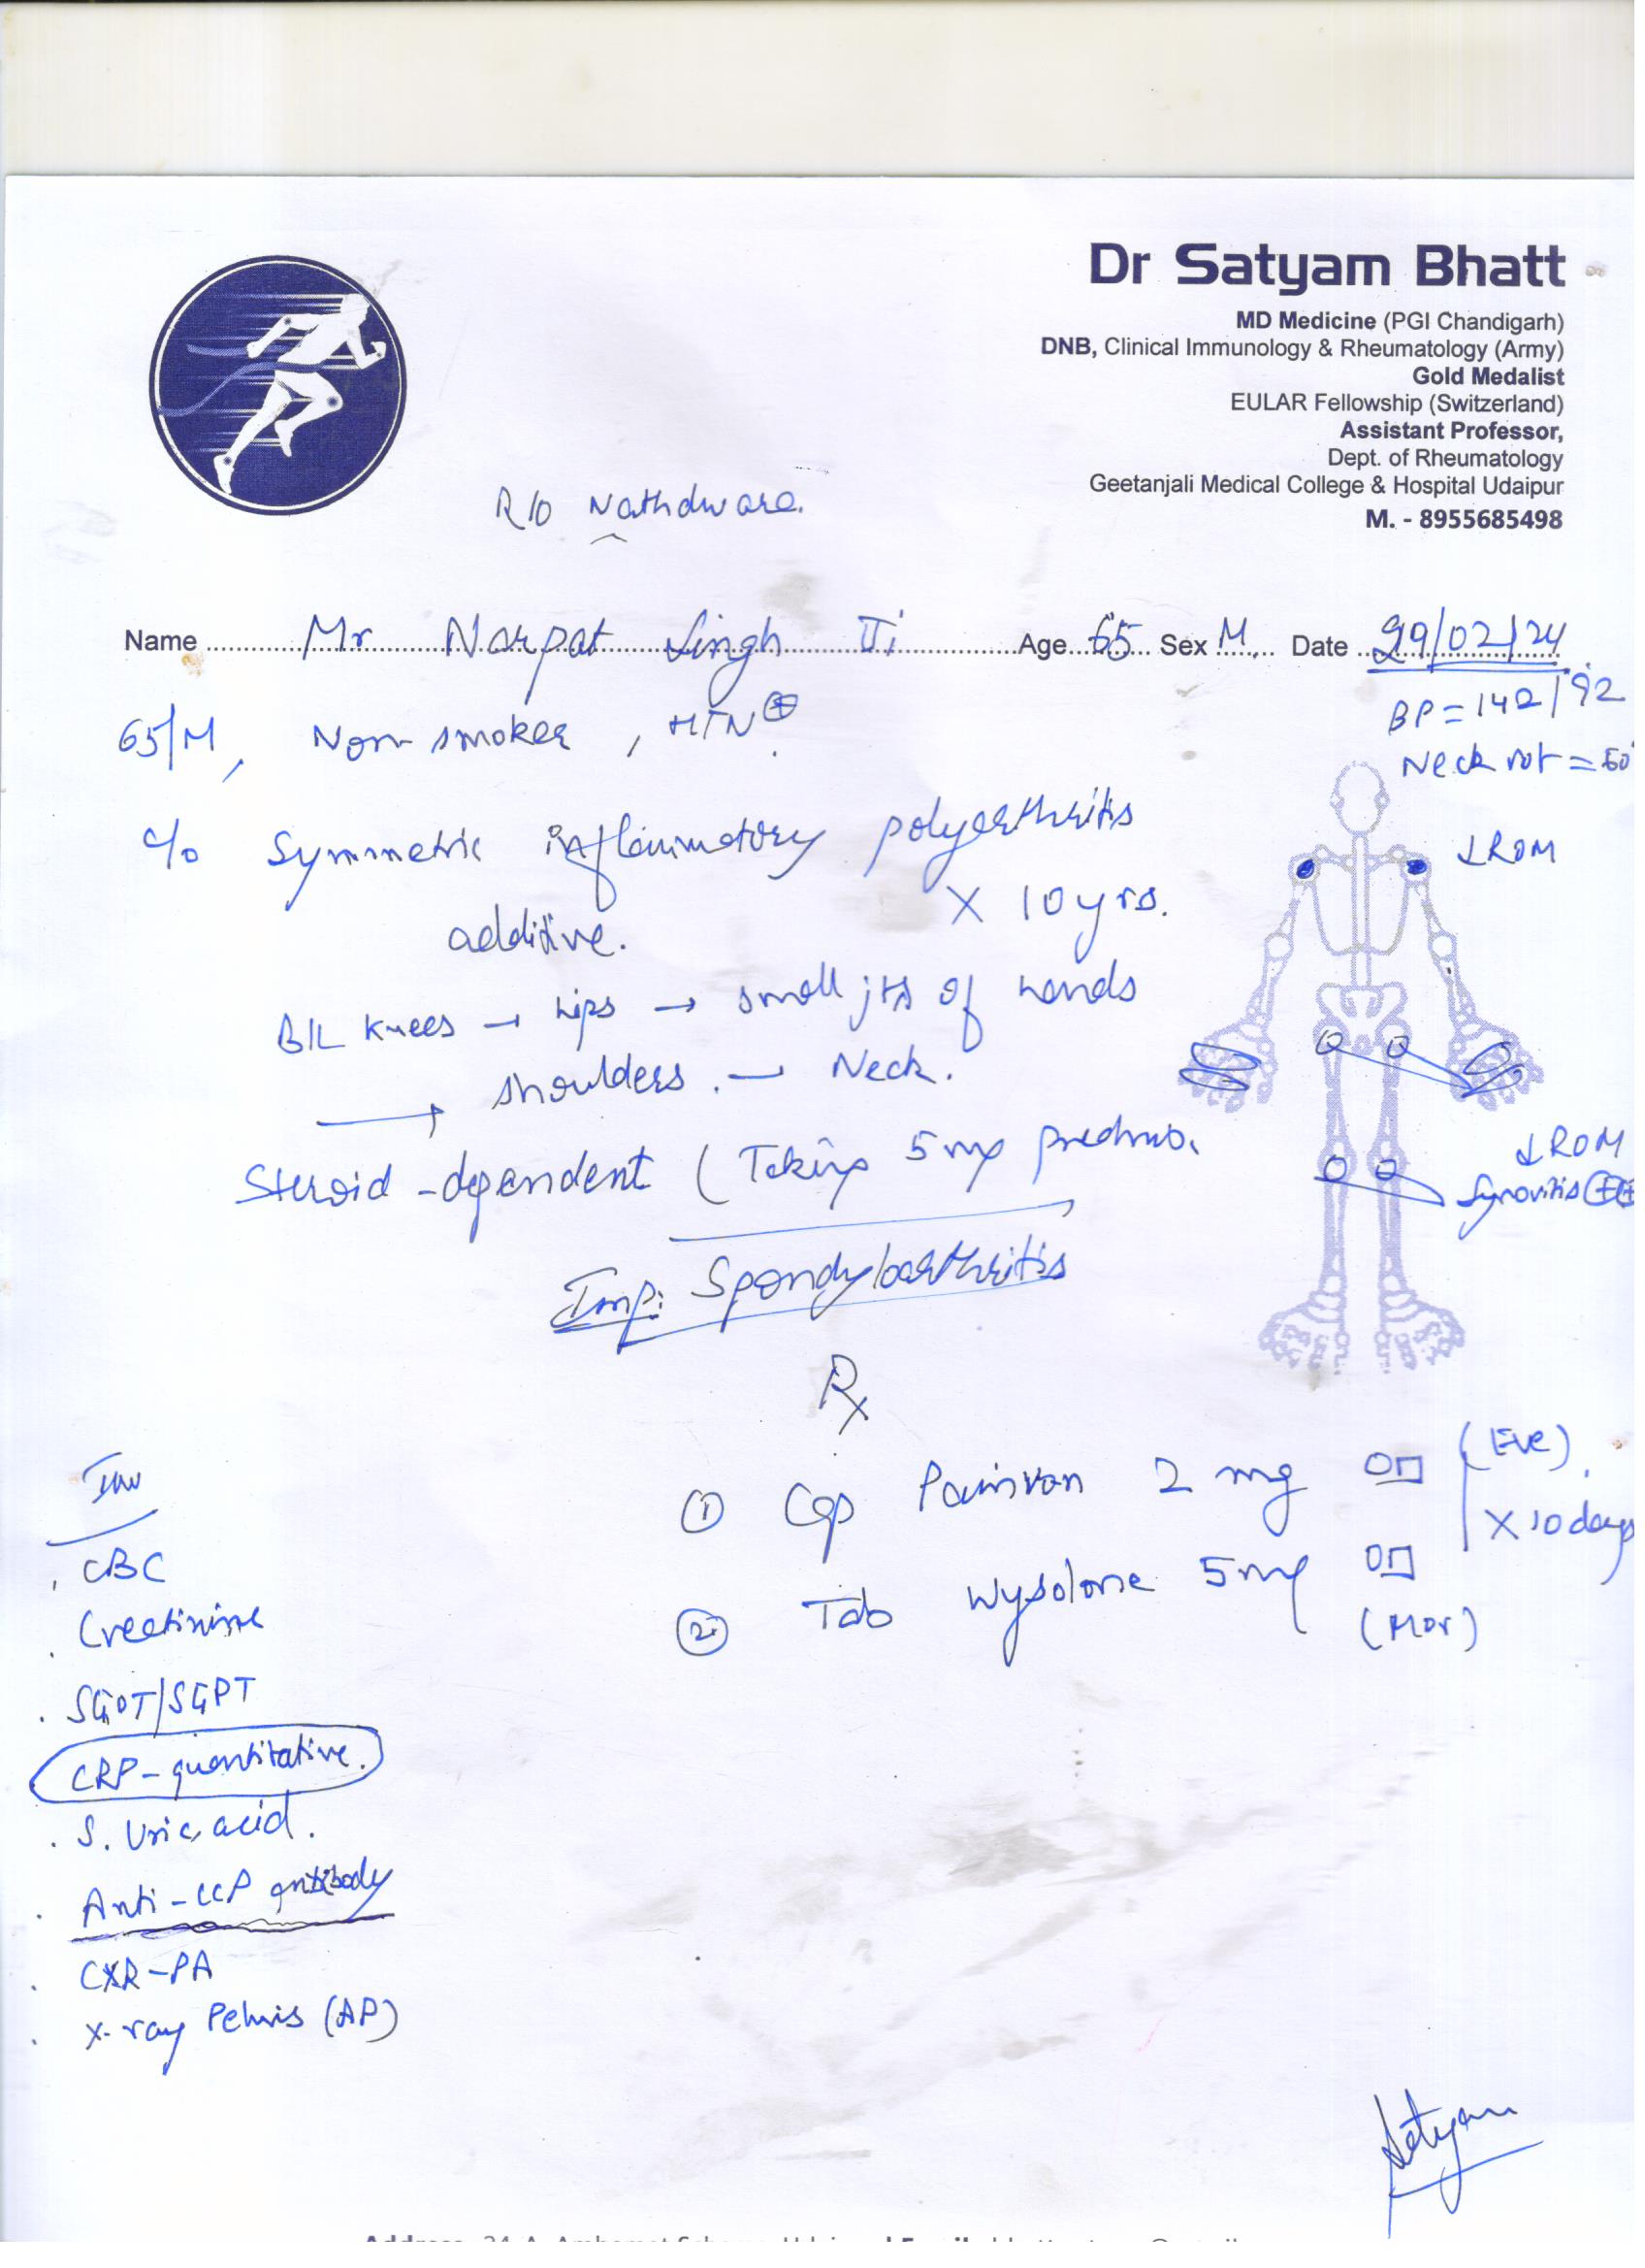 Dr Satyam Bhatt
MD Medicine (PGI Chandigarh)
DNB, Clinical Immunology & Rheumatology (Army)
Gold Medalist
EULAR Fellowship (Switzerland)
Assistant Professor,
Dept. of Rheumatology
Geetanjali Medical College & Hospital Udaipur
M. - 8955685498
R/o Nathdwara.
Name Mr Narpat Singh Ji Age 65 Sex M. Date 29/02/24
BP = 142/92
65/M, Non-smoker, HTN ⊕
Neck rot = 60°
c/o Symmetric inflammatory polyarthritis
↓ROM
additive. X 10 yrs.
B/L knees → hips → small jts of hands
→ shoulders. → Neck.
Steroid-dependent (Taking 5 mg
↓ROM
Synovitis
Imp: Spondyloarthritis
Rx
Inv
① Cap 2 mg OD (Eve)
X 10 days
CBC
② Tab Wysolone 5mg OD
(Mor)
Creatinine
SGOT/SGPT
CRP-quantitative.
S. Uric acid.
Anti-CCP antibody
CXR-PA
X-ray Pelvis (AP)
Satyam